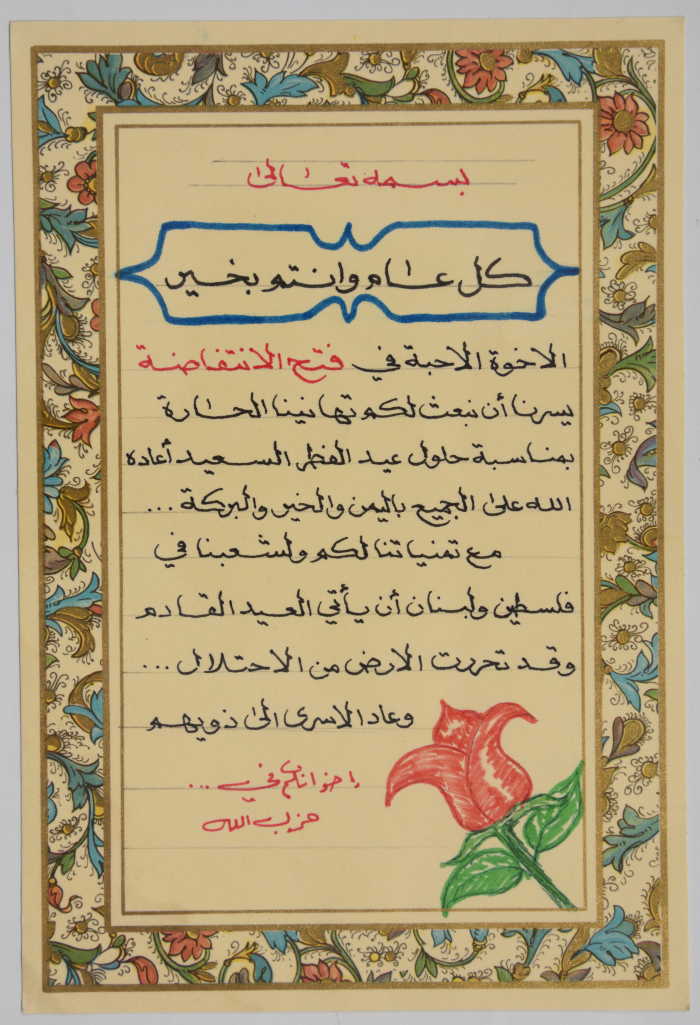 بسمه تعالى
كل عام وانتم بخير
الاخوة الاحبة في فتح الانتفاضة
يسرنا أن نبعث لكم تهانينا الحارة
بمناسبة حلول عيد الفطر السعيد أعاده
الله على الجميع باليمن والخير والبركة ...
مع تمنياتنا لكم ولشعبنا في
فلسطين ولبنان أن يأتي العيد القادم
وقد تحررت الارض من الاحتلال ...
وعاد الاسرى الى ذويهم
إخوانكم في ...
حزب الله